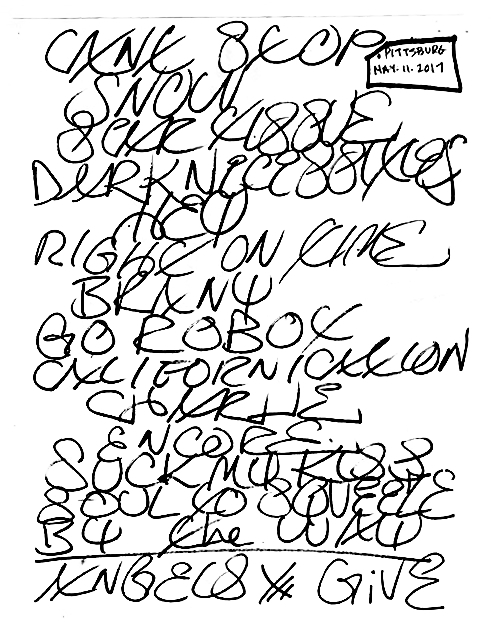 CANT STOP
PITTSBURG
MAY.11.2017
SNOW
SCAR TISSUE
DARK NECESSITIES
HEY
RIGHT ON TIME
BRANY
GO ROBOT
CALIFORNICATION
CHARLIE
ENCORE:
SUCK MY KISS
SOUL TO SQUEEZE
BY the WAY
ANGELS GiVE